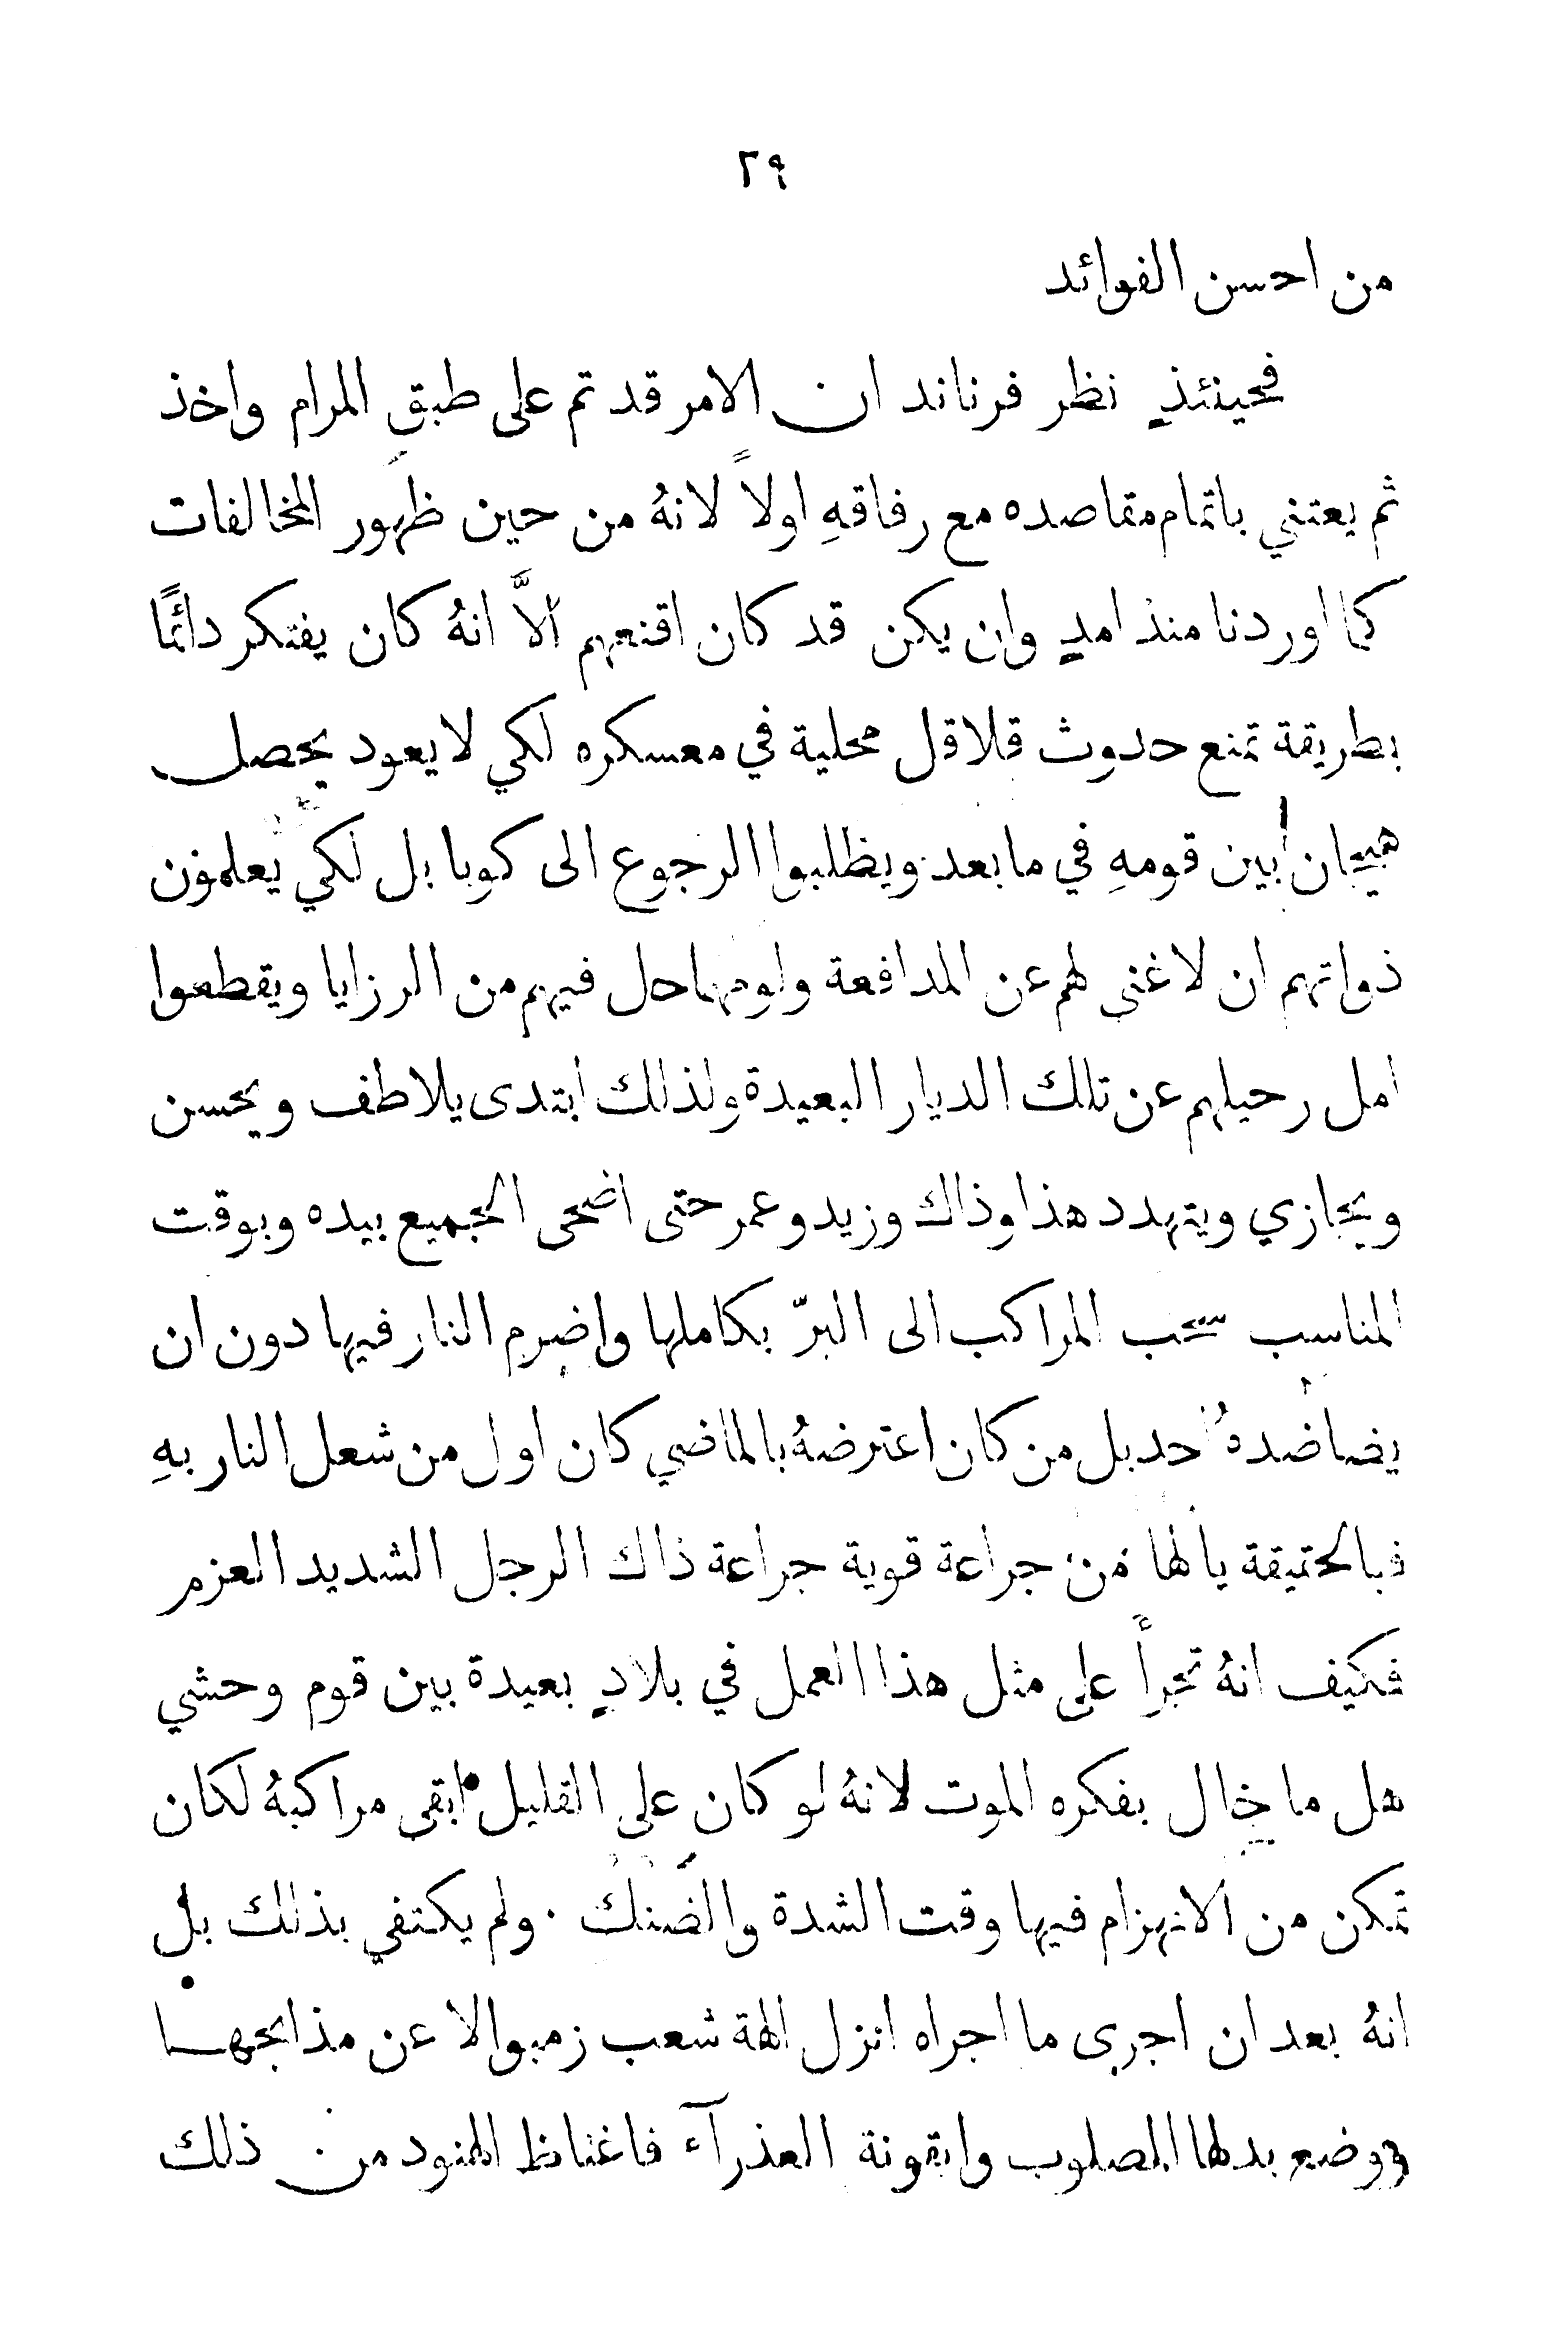 ٢٩
من احسن الفوائد
فحينئذٍ نظر فرناند ان الامر قد تم على طبق المرام واخذ
ثم يعتني باتمام مقاصده مع رفاقهِ اولاً لانهُ من حين ظهور المخالفات
كما اوردنا منذ امدٍ وان يكن قد كان اقنعهم الاَّ انهُ كان يفتكر دائمًا
بطريقة تمنع حدوث قلاقل محلية في معسكره لكي لا يعود يحصل
هيجان أبين قومهِ في ما بعد ويظلبوا الرجوع الى كوبا بل لكي يعلمون
ذواتهم ان لا غنى لهم عن المدافعة ولو مهما حل فيهم من الرزايا ويقطعوا
امل رحيلهم عن تلك الديار البعيدة ولذلك ابتدى يلاطف ويحسن
ويجازي ويتهدد هذا وذاك وزيد وعمر حتى اضحى الجميع بيده وبوقت
المناسب سحب المراكب الى البرّ بكاملها واضرم النار فيها دون ان
يضاضدهُ احد بل من كان اعترضهُ بالماضي كان اول من شعل النار بهِ
فبالحقيقة يا لها من جراعة قوية جراعة ذاك الرجل الشديد العزم
فكيف انهُ تجرأ على مثل هذا العمل في بلادٍ بعيدة بين قوم وحشي
هل ما خال بفكره الموت لانهُ لو كان على القليل ابقى مراكبهُ لكان
تمكن من الانهزام فيها وقت الشدة والضنك . ولم يكتفي بذلك بل
انهُ بعد ان اجرى ما اجراه انزل الهة شعب زمبوالا عن مذابحها
ووضع بدلها المصلوب وايقونة العذرآء فاغتاظ الهنود من ذلك